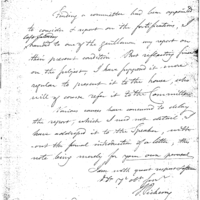 Finding a committee had been appointed
to consider & report on the fortifications, I
handed to one of the gentlemen my report on
their present condition. But reflecting further
on the subject I have supposed it more
regular to present it to the house, who
will of course refer it to the Committee
Various causes have occurred to delay
the report, which I need not detail. I
have addressed it to the Speaker, without
the formal introduction of a letter, this
note being merely for your own perusal.
I am with great respect